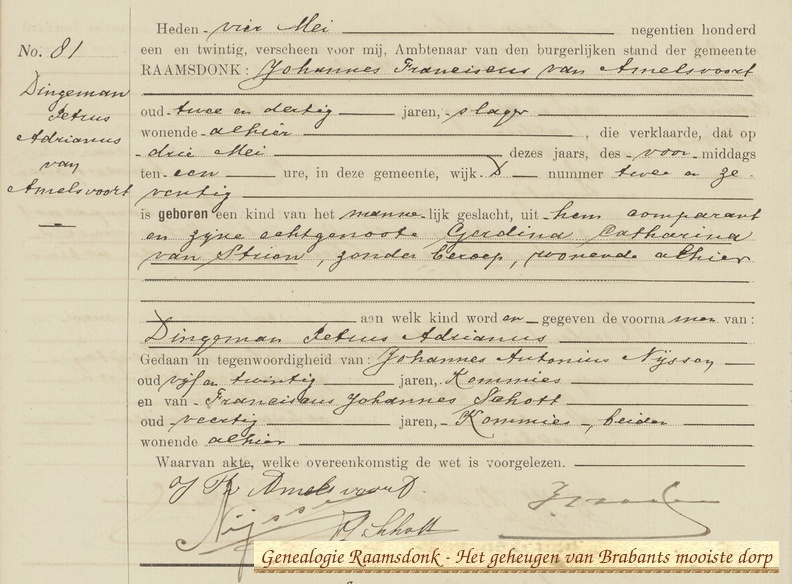 No. 81
Dingeman
Petrus
Adrianus
van
Amelsvoort
Heden vier Mei negentien honderd
een en twintig, verscheen voor mij, Ambtenaar van den burgerlijken stand der gemeente
RAAMSDONK: Johannes Franciscus van Amelsvoort
oud twee en dertig jaren, slager
wonende alhier, die verklaarde, dat op
drie Mei dezes jaars, des voor middags
ten een ure, in deze gemeente, wijk D nummer twee en ze-
ventig
is geboren een kind van het manne lijk geslacht, uit hem comparant
en zijne echtgenoote Gerdina Catharina
van Strien, zonder beroep, wonende alhier
aan welk kind word en gegeven de voorna men van:
Dingeman Petrus Adrianus
Gedaan in tegenwoordigheid van: Johannes Antonius Nijssen
oud vijf en twintig jaren, Kommies
en van Franciscus Johannes Schott
oud veertig jaren, Kommies, beiden
wonende alhier
Waarvan akte, welke overeenkomstig de wet is voorgelezen.
Amelsvoort
Nijssen
Schott
Genealogie Raamsdonk - Het geheugen van Brabants mooiste dorp